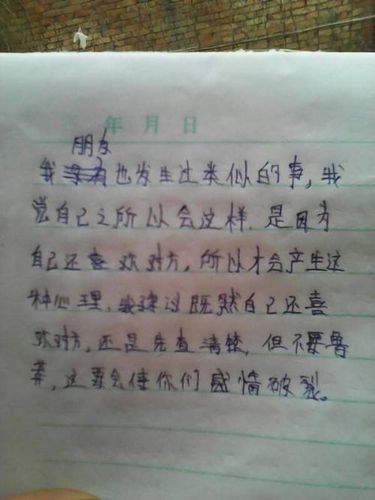 年 月 日
朋友
我也发生过类似的事，我
觉自己之所以会这样，是因为
自己还喜欢对方，所以才会产生这
种心理，我建议既然自己还喜
欢对方，还是先查清楚，但不要鲁
莽，这要会使你们感情破裂。